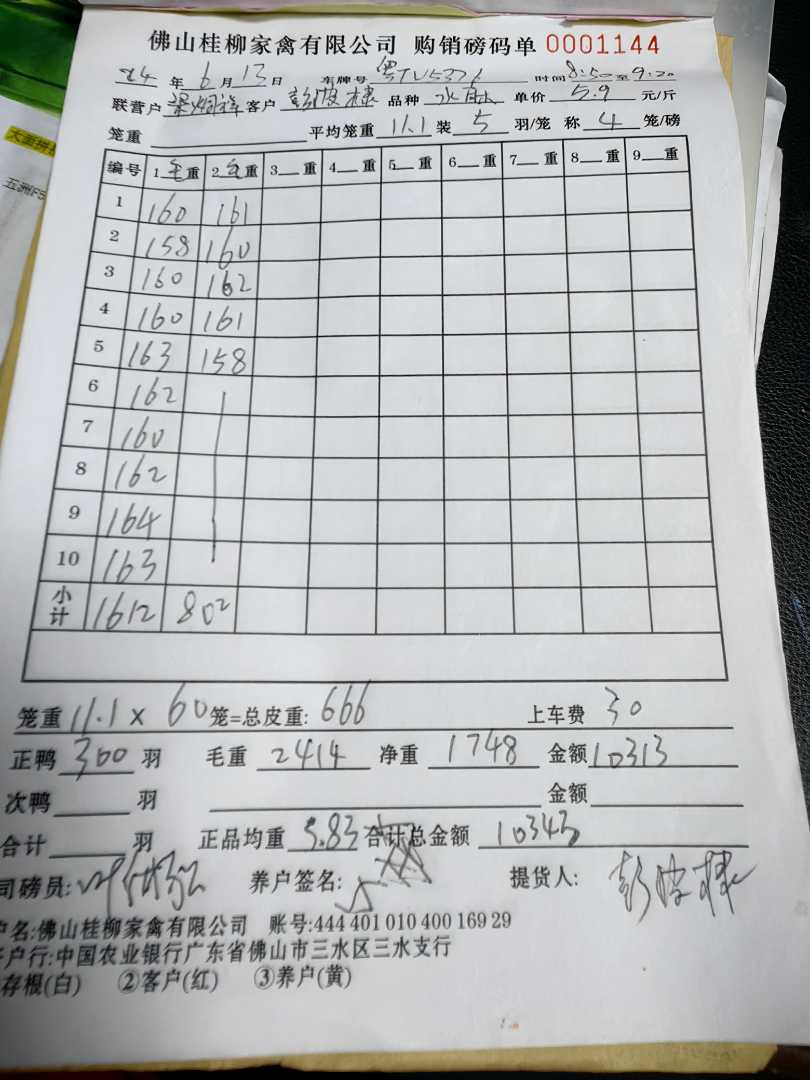 佛山桂柳家禽有限公司 购销磅码单 0001144
24 年 6 月 13 日 车牌号 粤TU5376 时间 8:50 至 9:20
联营户 客户 彭波棣 品种 水 单价 5.9 元/斤
笼重 平均笼重 11.1 装 5 羽/笼 称 4 笼/磅
编号 1 毛 重 2 毛 重 3 重 4 重 5 重 6 重 7 重 8 重 9 重
1 160 161
2 158 160
3 160 162
4 160 161
5 163 158
6 162
7 160
8 162
9 164
10 163
小计 1612 802
笼重 11.1 x 60 笼=总皮重: 666 上车费 30
正鸭 300 羽 毛重 2414 净重 1748 金额 10313
次鸭 羽 金额
合计 羽 正品均重 5.83 合计总金额 10343
司磅员: 养户签名: 提货人: 彭波棣
户名:佛山桂柳家禽有限公司 账号:444 401 010 400 169 29
户行:中国农业银行广东省佛山市三水区三水支行
存根(白) ②客户(红) ③养户(黄)
五洲FS